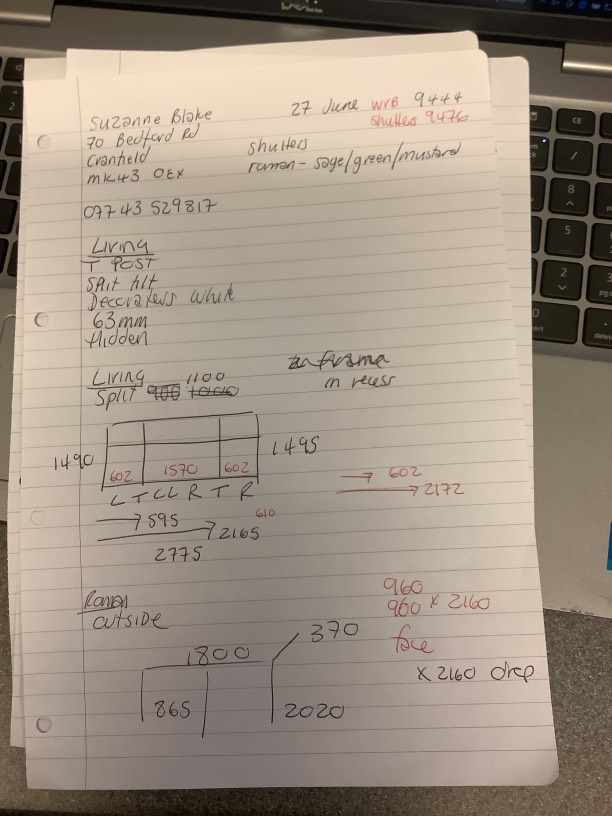 Suzanne Blake
27 June WRB 9444
shutters 9476
70 Bedford Rd
Cranfield
shutters
MK43 OEX
roman - sage/green/mustard
07743 529817
Living
T POST
Split tilt
Decorators White
63mm
Hidden
Living
Split 900 1000 1100
frame
in recess
1490
1495
602 1570 602
L T L L R T R
602
2172
595
610
2165
2775
Roman
outside
960
960 x 2160
face
x 2160 drop
1800
370
865
2020